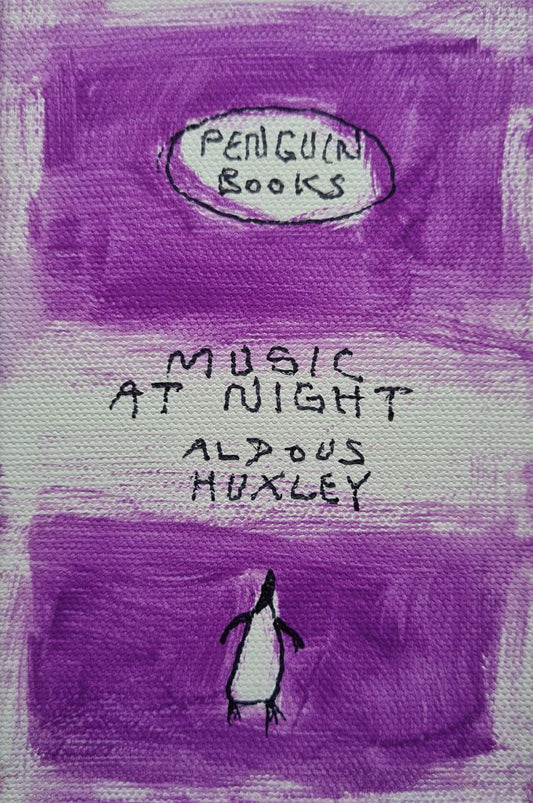 PENGUIN
BOOKS
MUSIC
AT NIGHT
ALDOUS
HUXLEY